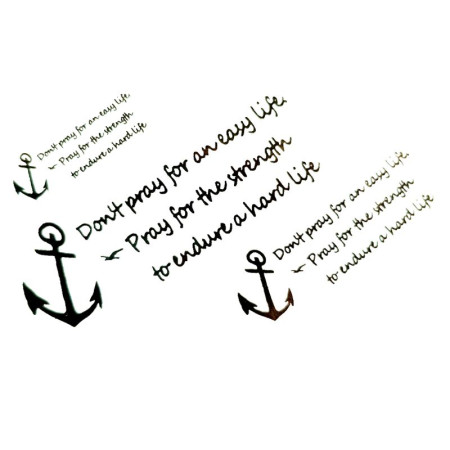 Don't pray for an easy life.
Pray for the strength
to endure a hard life
Don't pray for an easy life.
Pray for the strength
to endure a hard life
Don't pray for an easy life.
Pray for the strength
to endure a hard life